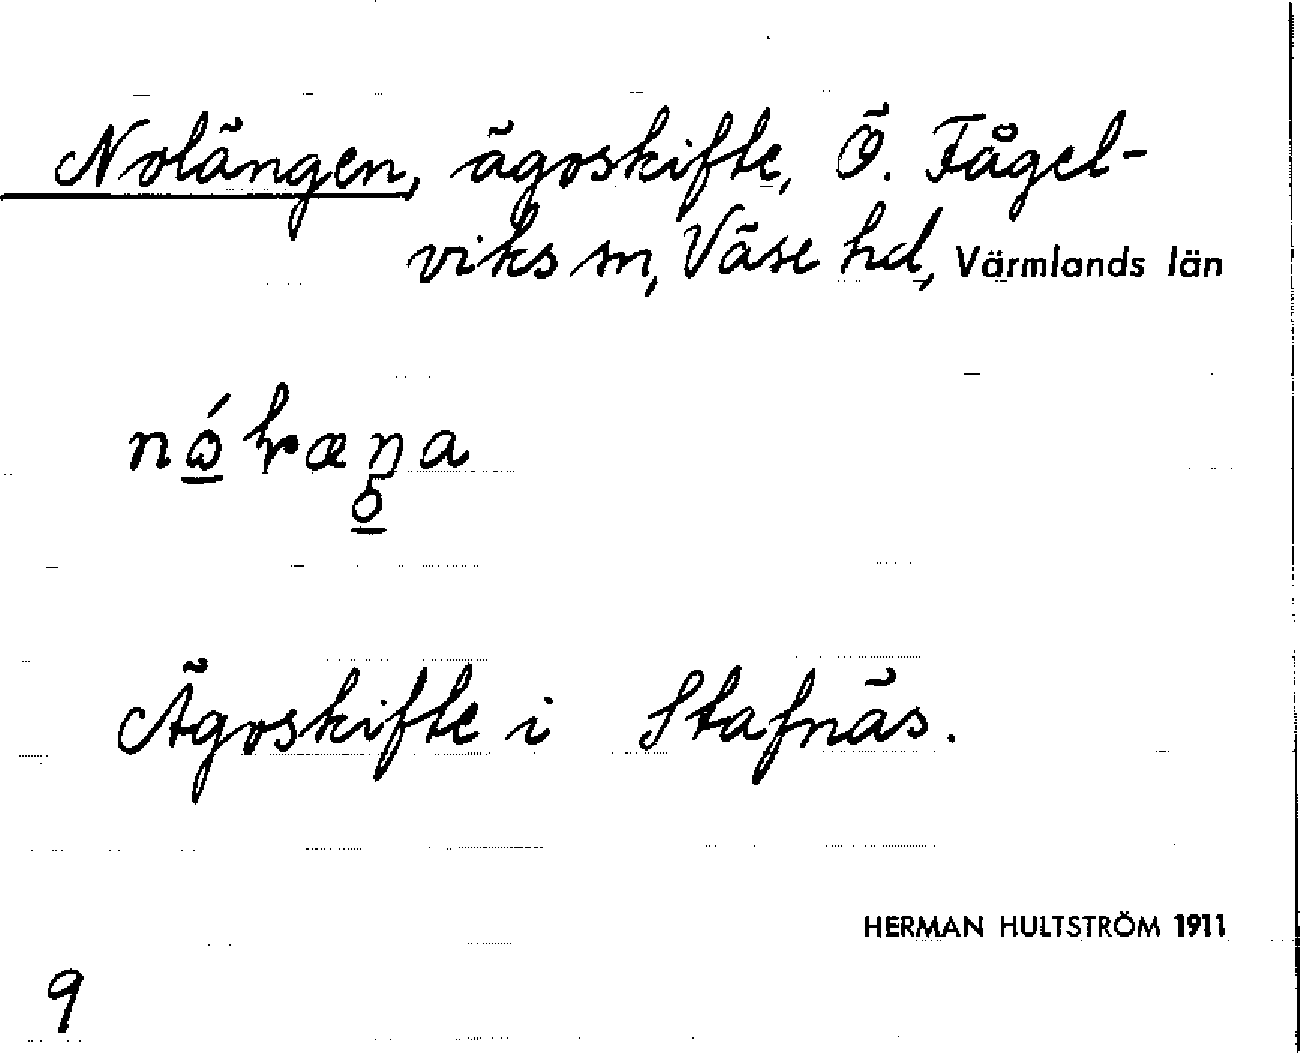 Nolängen, ägoskifte, Ö. Fågel-
viks sn, Väse hd, Värmlands län
Ägoskifte i Stafnäs.
HERMAN HULTSTRÖM 1911
9